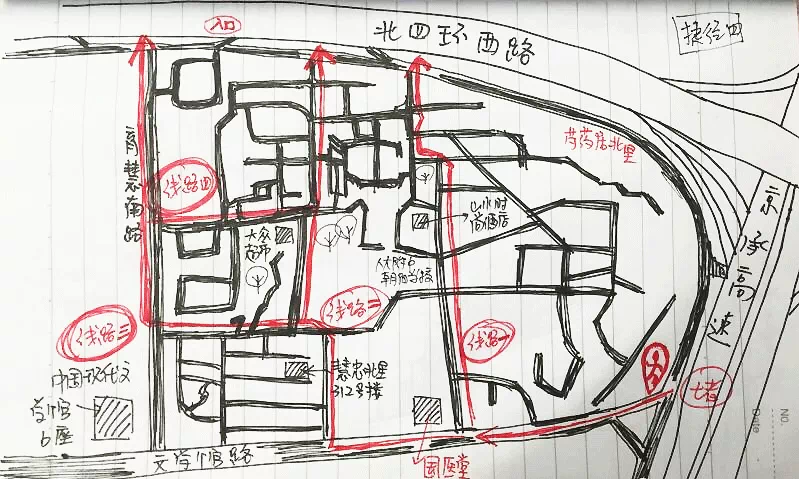 入口
北四环西路
捷径四
芍药居北里
育慧南路
线路四
山水时
尚酒店
京承高速
大众
超市
人大附中
朝阳学校
线路二
线路三
线路一
中国现代文
学馆
B座
慧忠北里
312号楼
七堵
No.
Date
文学馆路
国医堂